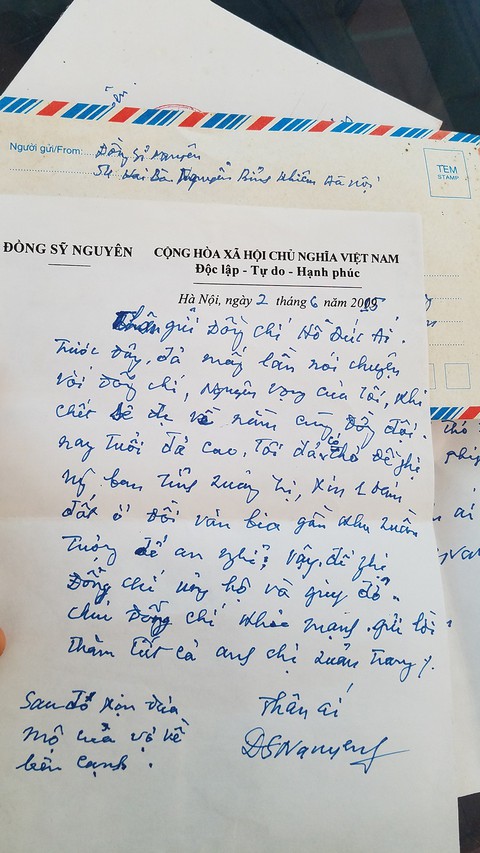 Người gửi/From: Đồng Sĩ Nguyên
54 Hai Bà Nguyễn Bỉnh Khiêm Hà Nội
TEM
STAMP
ĐỒNG SỸ NGUYÊN
CỘNG HÒA XÃ HỘI CHỦ NGHĨA VIỆT NAM
Độc lập - Tự do - Hạnh phúc
Hà Nội, ngày 2 tháng 6 năm 2015
Thân gửi Đồng chí Hồ Đức Ái.
Trước đây, đã mấy lần nói chuyện
với đồng chí, nguyện vọng của tôi, khi
chết sẽ về nằm cùng đồng đội.
nay tuổi đã cao, tôi đã có thơ đề nghị
Uỷ ban tỉnh Quảng Trị, xin 1 đám
đất ở đồi văn bia gần khu Quân
trang để an nghỉ, vậy, đề nghị
Đồng chí ủng hộ và giúp đỡ.
chúc đồng chí khỏe mạnh. gửi lời
thăm tất cả anh chị Quản trang.
Thân ái
DSNguyên
Sau đó xin đưa
mộ của vợ về
bên cạnh.